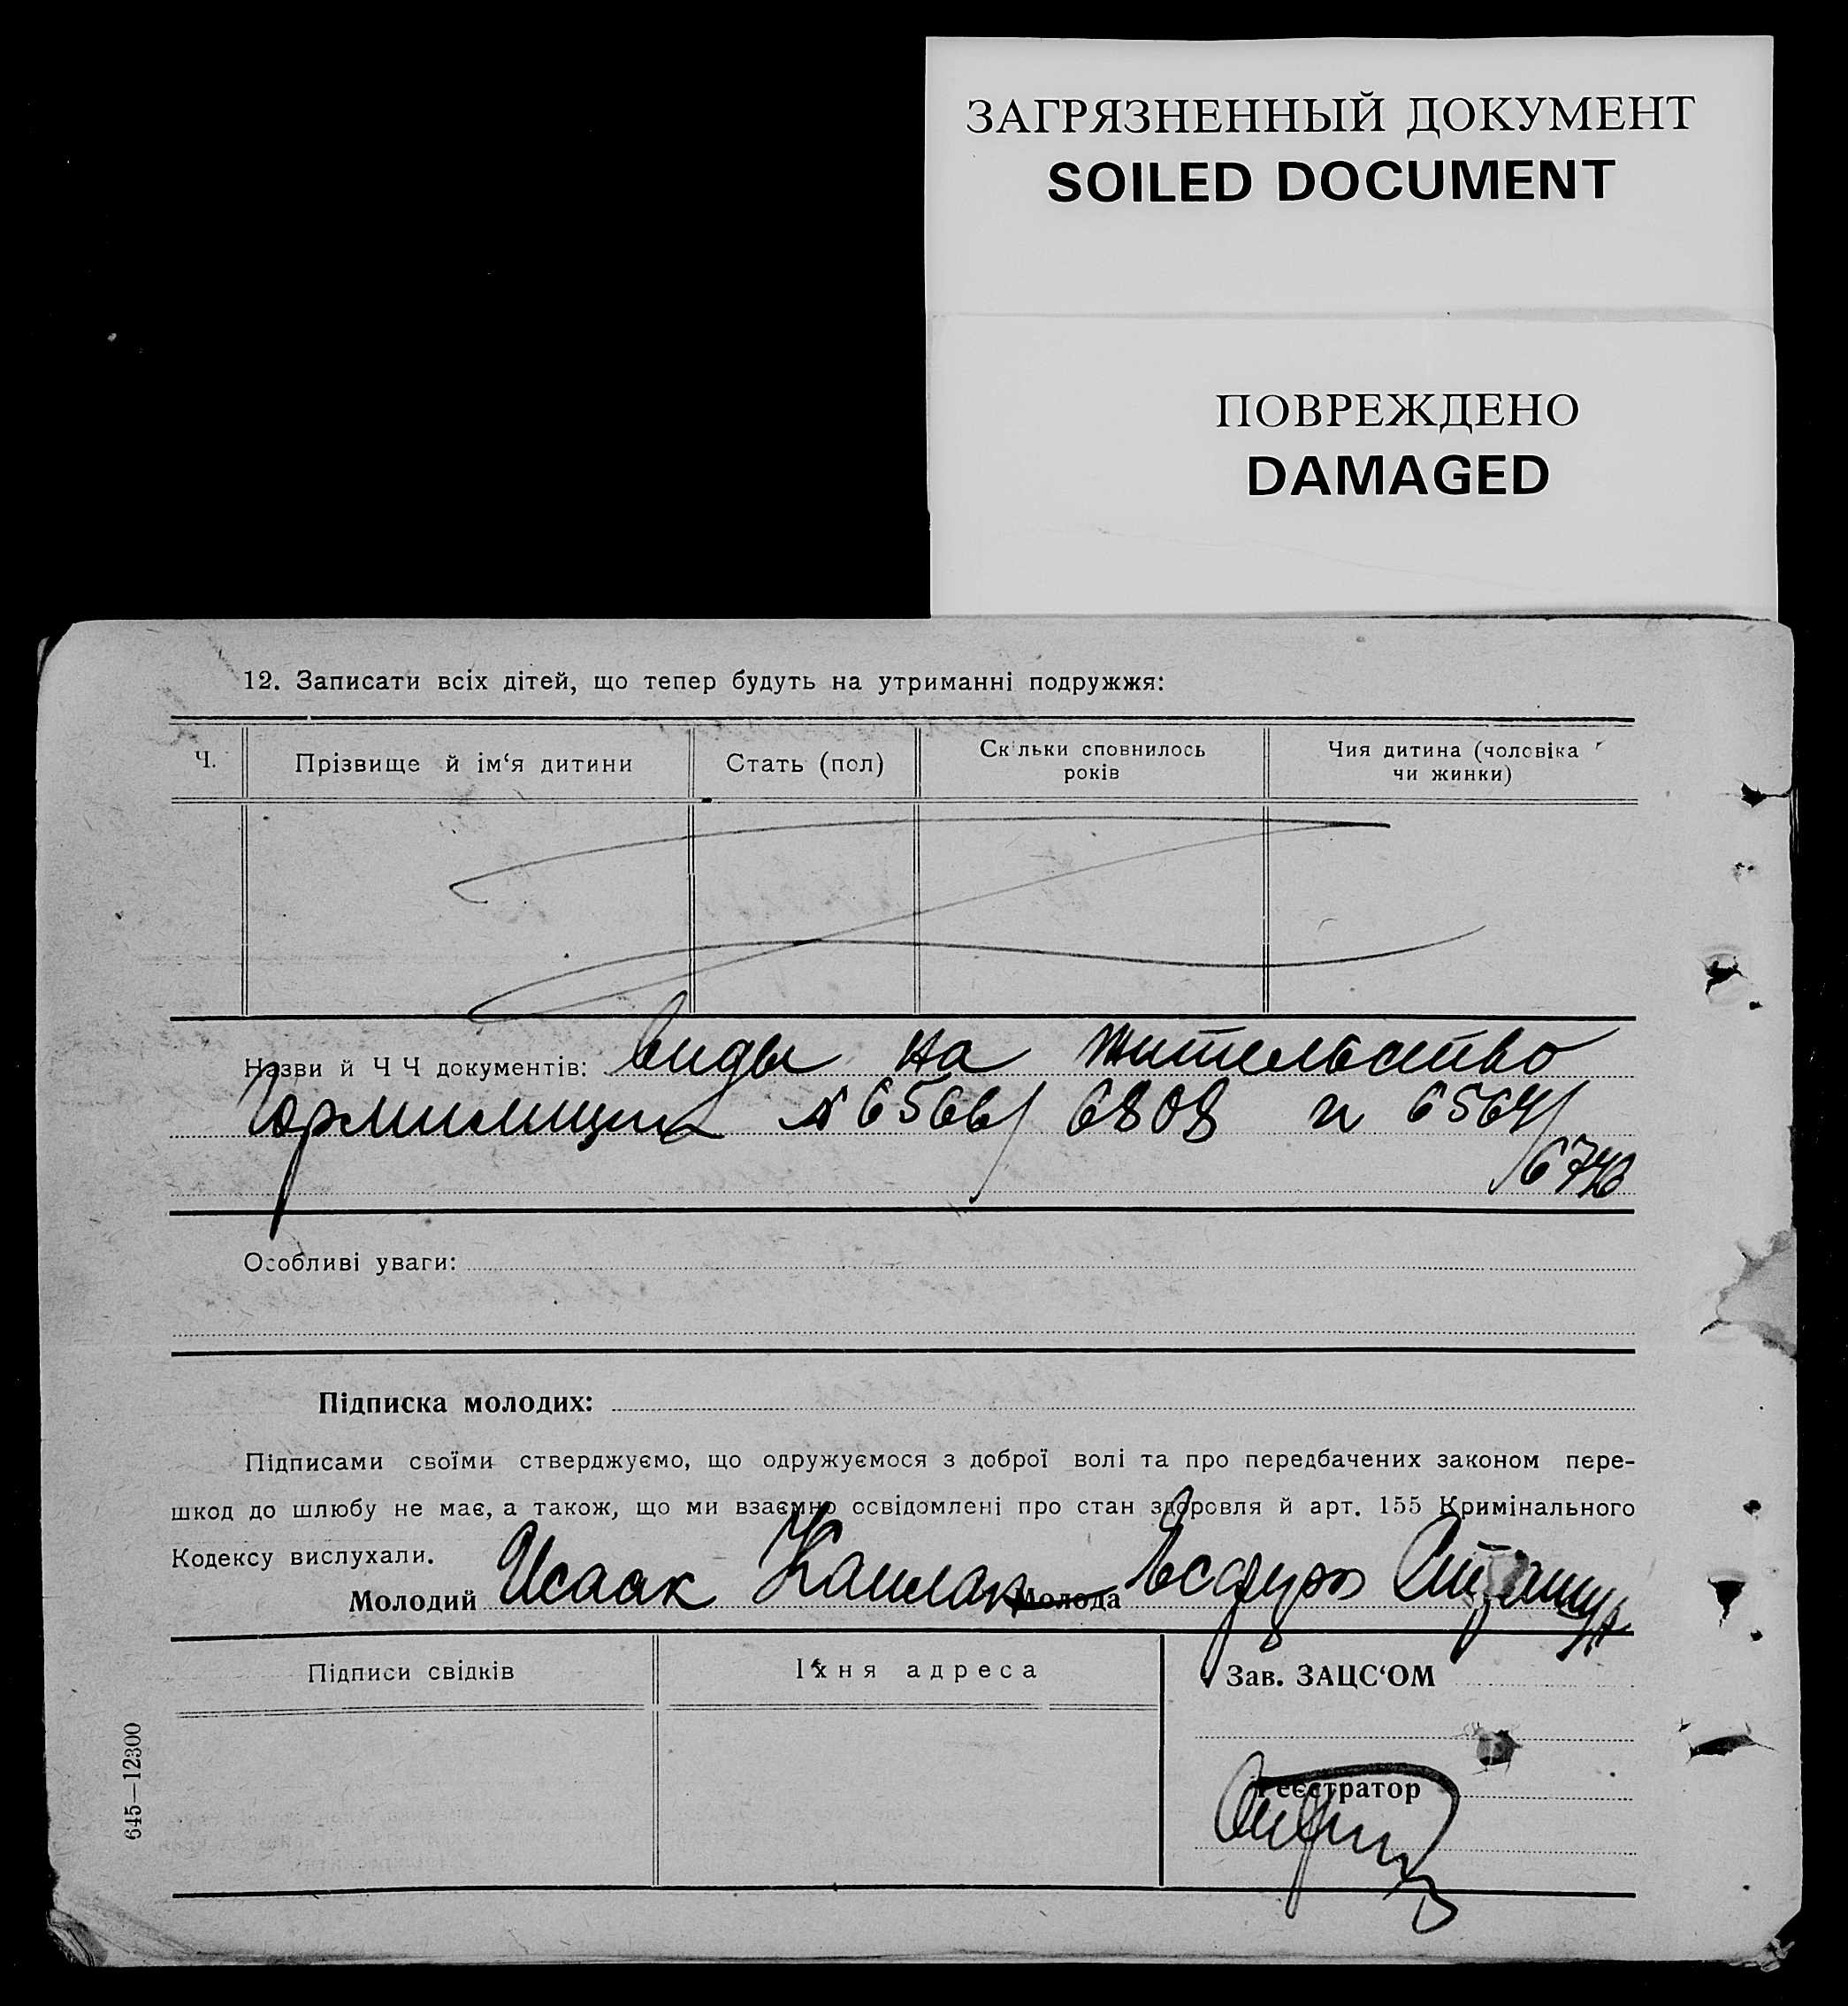 ЗАГРЯЗНЕННЫЙ ДОКУМЕНТ
SOILED DOCUMENT
ПОВРЕЖДЕНО
DAMAGED
12. Записати всіх дітей, що тепер будуть на утриманні подружжя:
Ч.
Прізвище й ім‘я дитини
Стать (пол)
Скільки сповнилось
років
Чия дитина (чоловіка
чи жинки)
Назви й Ч Ч документів: виды на жительство
Гормилиции № 6566/6808 и 6564/
6746
Особливі уваги:
Підписка молодих:
Підписами своїми стверджуємо, що одружуємося з доброї волі та про передбачених законом пере-
шкод до шлюбу не має, а також, що ми взаємно освідомлені про стан здоровля й арт. 155 Кримінального
Кодексу вислухали.
Молодий Исаак Каплан Молода
Підписи свідків
Їхня адреса
Зав. ЗАЦС‘ОМ
Реєстратор
645—12300